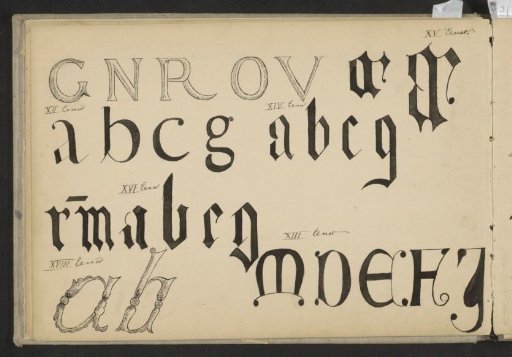 XV Eeuw
G N R O V æ
XII Eeuw
XIV Eeuw
a b c g a b c g
XVI Eeuw
r̄m a b c g
XIII Eeuw
XVIII Eeuw
a b M D E F H